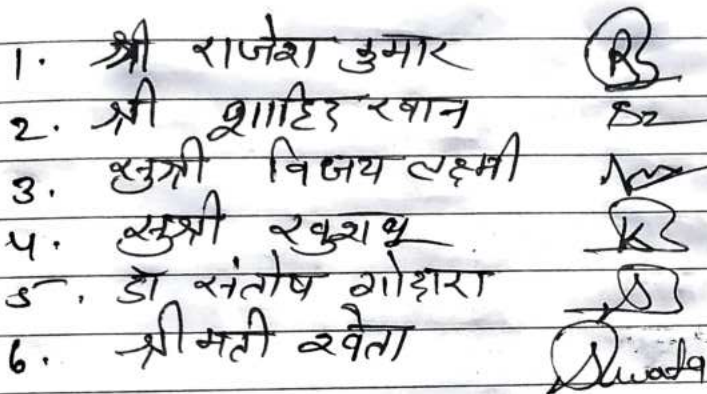 1. श्री राजेश कुमार
2. श्री शाहिद खान
3. सुश्री विजय लक्ष्मी
4. सुश्री खुशबू
5. डॉ संतोष गोदारा
6. श्रीमती श्वेता